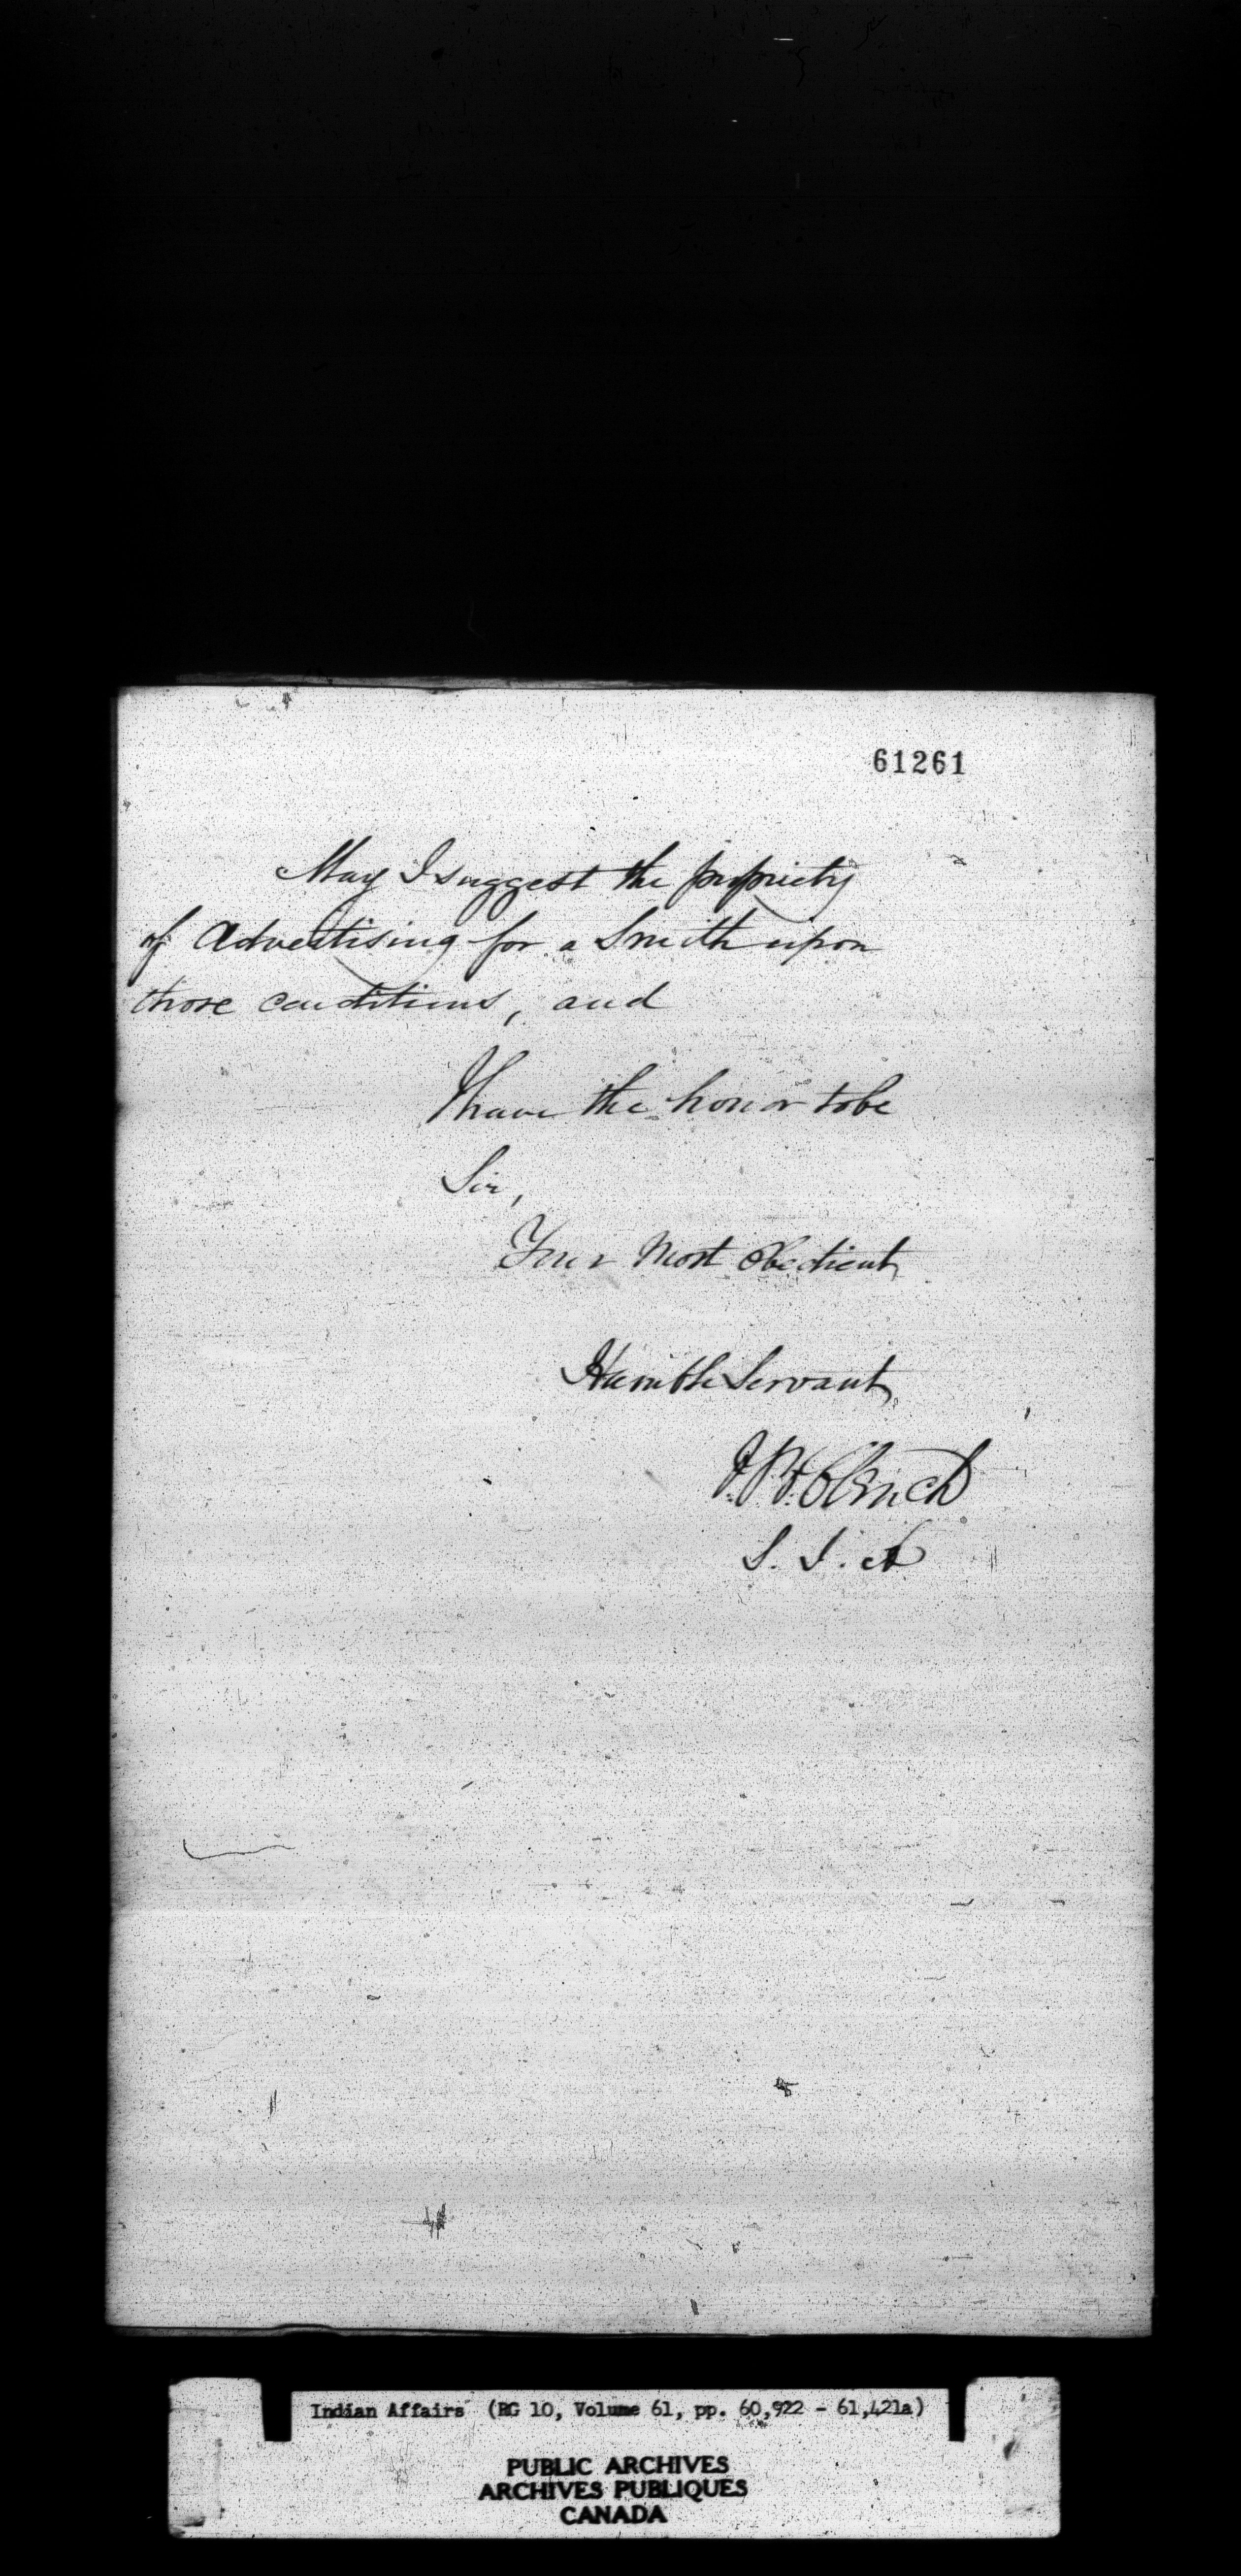 61261
May I suggest the propriety
of Advertising for a Smith upon
those conditions, and
I have the honor to be
Sir,
Your Most Obedient
Humble Servant
J. B. Clench
S. I. A
Indian Affairs (RG 10, Volume 61, pp. 60,922 - 61,421a)
PUBLIC ARCHIVES
ARCHIVES PUBLIQUES
CANADA